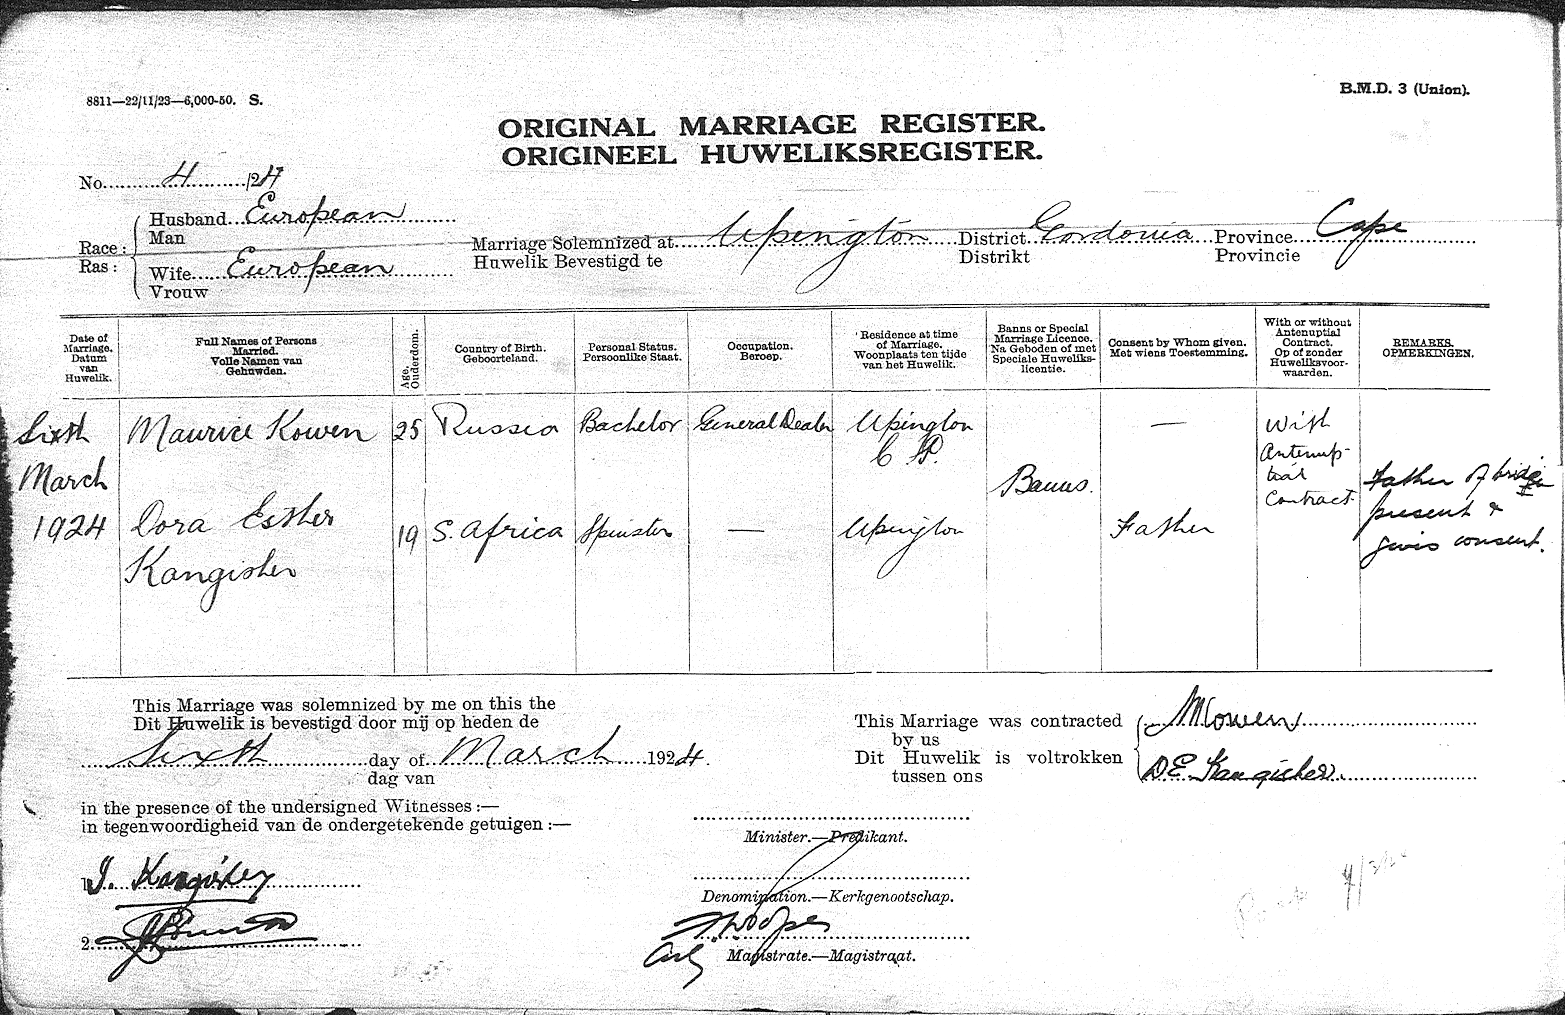 8811—22/11/23—6,000-50. S.
B.M.D. 3 (Union).
ORIGINAL MARRIAGE REGISTER.
ORIGINEEL HUWELIKSREGISTER.
No. 4 /24
Race :
Ras :
Husband European
Man
Wife European
Vrouw
Marriage Solemnized at Upington District Gordonia Province Cape
Huwelik Bevestigd te Distrikt Provincie
Date of Marriage. Datum van Huwelik.
Full Names of Persons Married. Volle Namen van Gehuwden.
Age. Ouderdom.
Country of Birth. Geboorteland.
Personal Status. Persoonlike Staat.
Occupation. Beroep.
Residence at time of Marriage. Woonplaats ten tijde van het Huwelik.
Banns or Special Marriage Licence. Na Geboden of met Speciale Huweliks-licentie.
Consent by Whom given. Met wiens Toestemming.
With or without Antenuptial Contract. Op of zonder Huweliksvoor-waarden.
REMARKS. OPMERKINGEN.
Sixth March 1924
Maurice Kowen 25 Russia Bachelor General Dealer Upington C.P. —
Dora Esther Kangisher 19 S. Africa Spinster — Upington Father
Banns.
With Antenup-tial Contract.
Father of bride present & gives consent.
This Marriage was solemnized by me on this the
Dit Huwelik is bevestigd door mij op heden de
Sixth day of March 1924.
dag van
in the presence of the undersigned Witnesses :—
in tegenwoordigheid van de ondergetekende getuigen :—
1. I. Kangisher
2.
This Marriage was contracted by us
Dit Huwelik is voltrokken tussen ons
M Kowen
D.E. Kangisher.
Minister.—Predikant.
Denomination.—Kerkgenootschap.
Magistrate.—Magistraat.